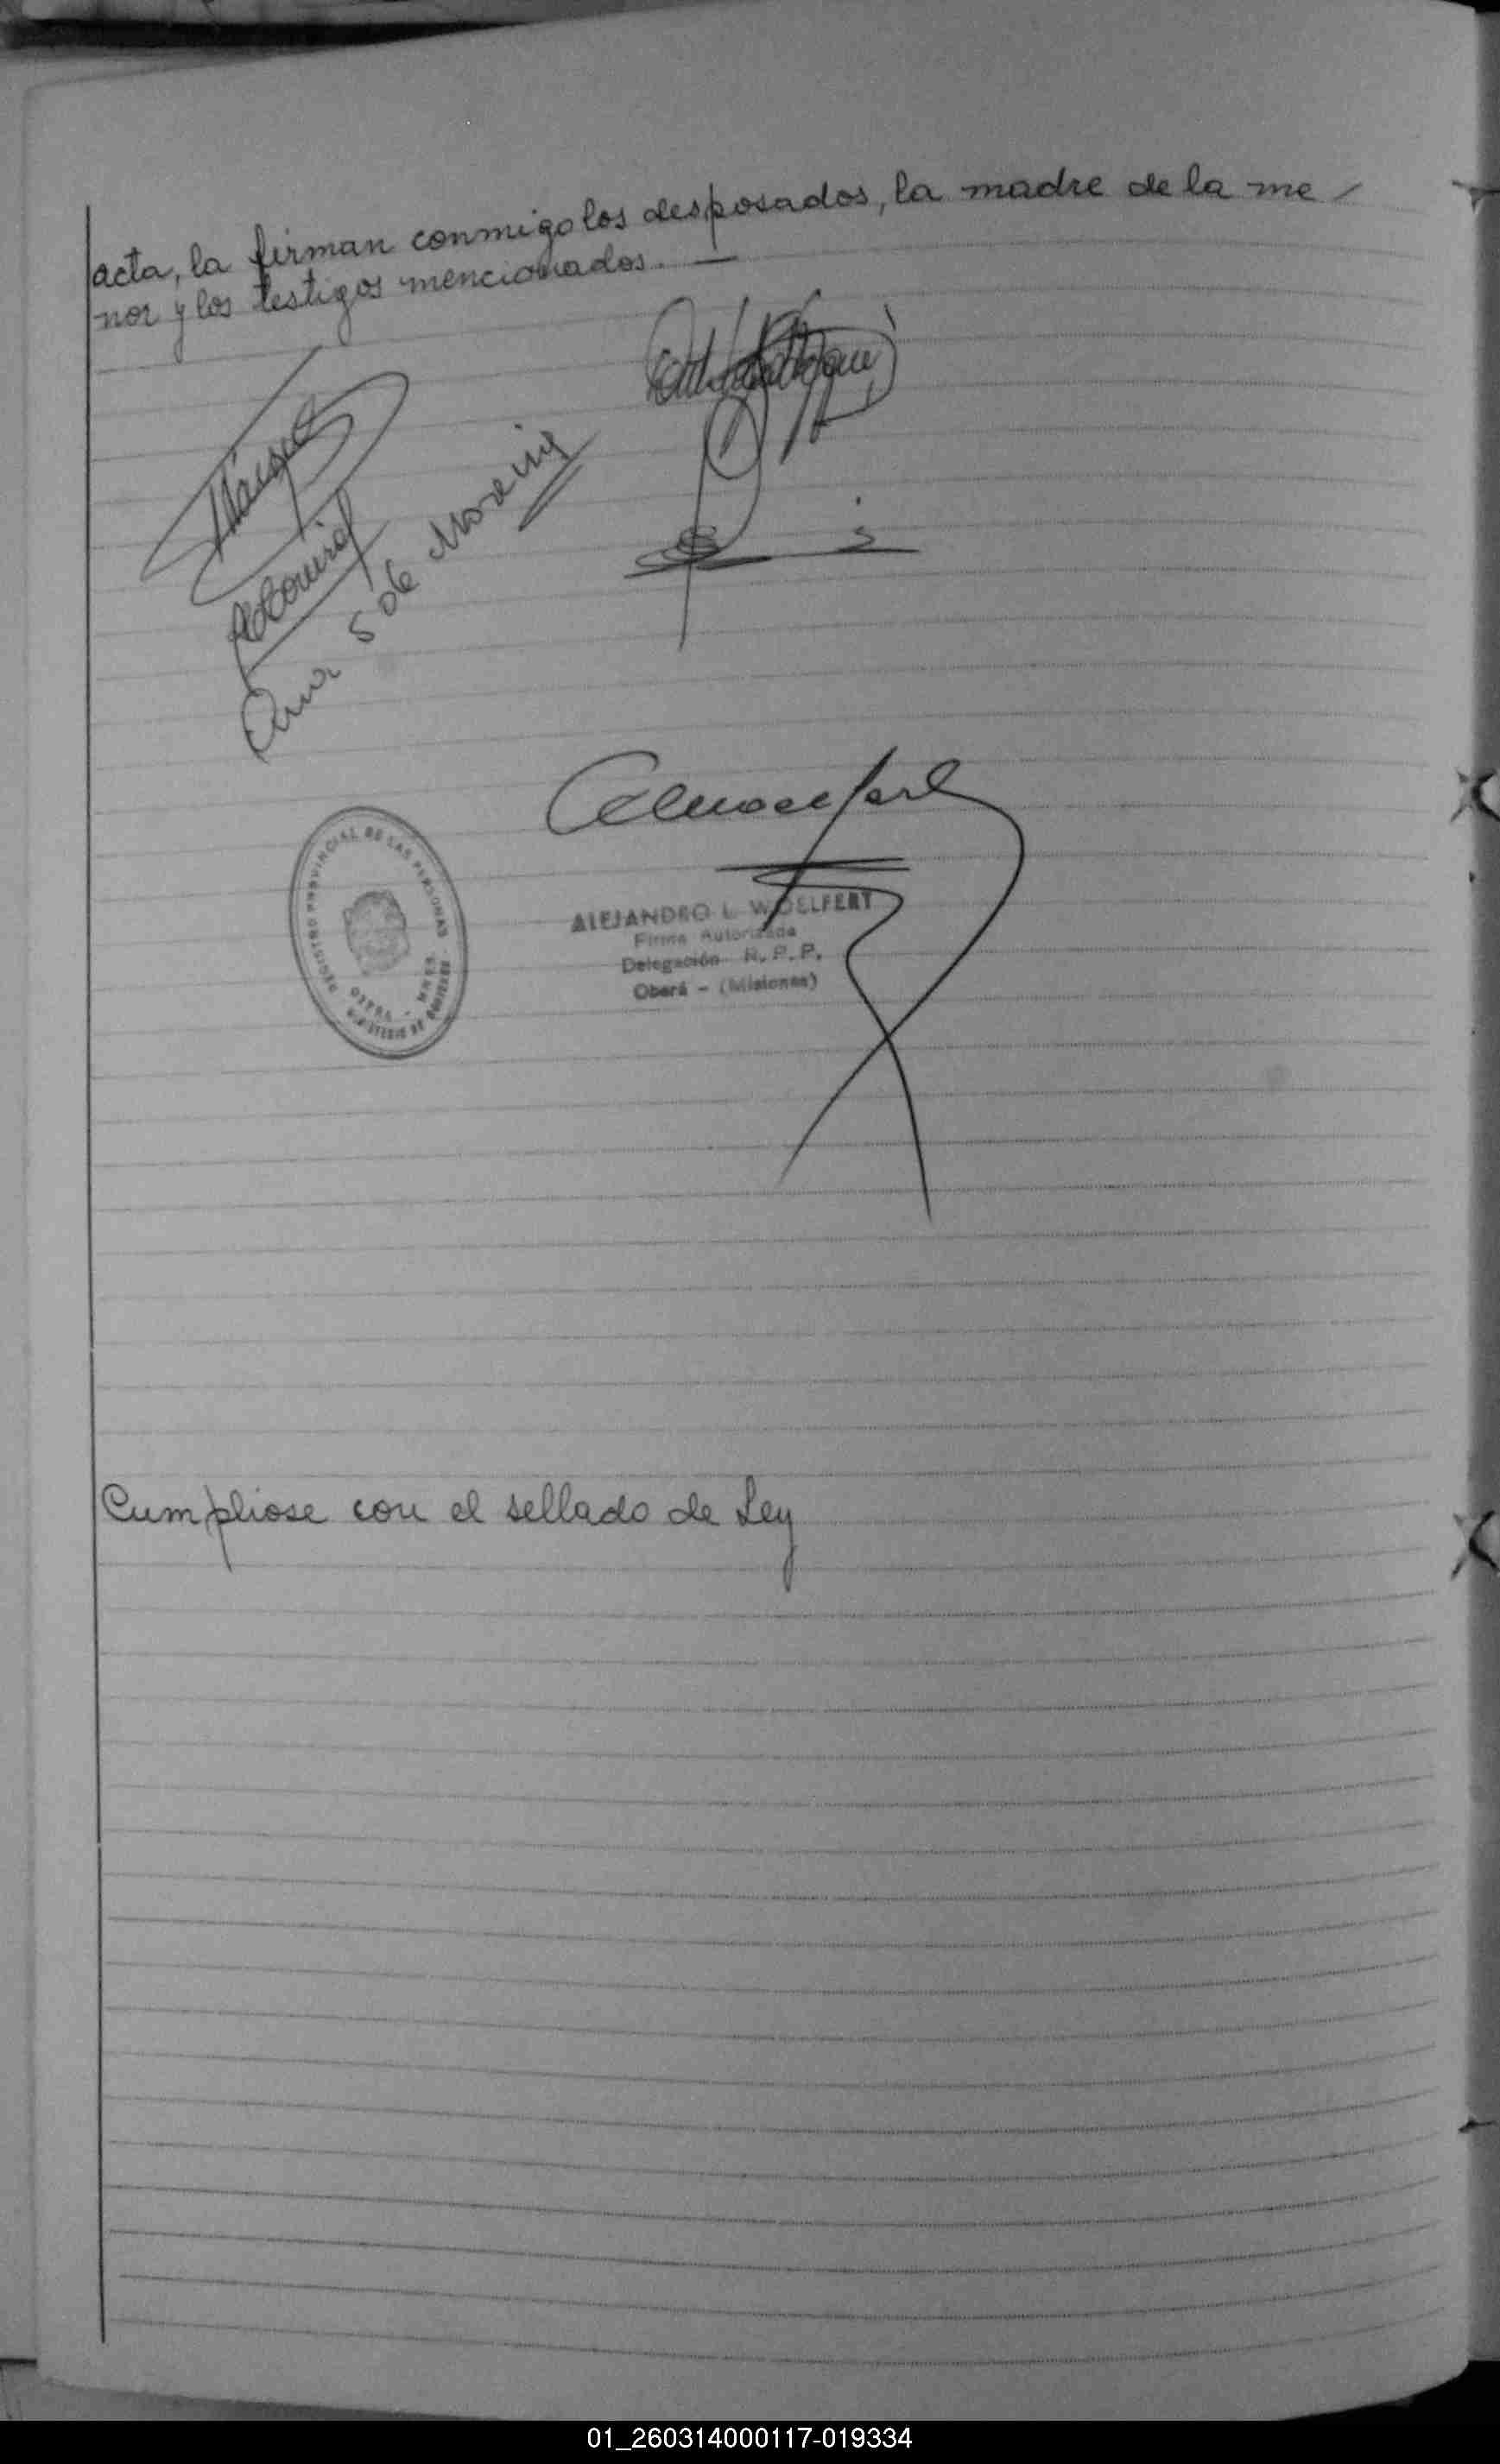 acta, la firman conmigo los desposados, la madre de la me-
nor y los testigos mencionados. —
Ana S de Moreira
REGISTRO PROVINCIAL DE LAS PERSONAS
OBERA - MNES.
MINISTERIO DE GOBIERNO
ALEJANDRO L. WOELFERT
Firma Autorizada
Delegación R. P. P.
Oberá - (Misiones)
Cumpliose con el sellado de Ley
01_260314000117-019334